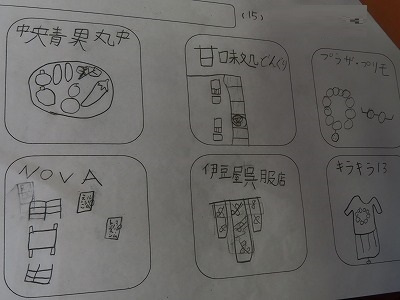 (15)
中央青果丸中
甘味処どんぐり
プラザ・プリモ
NOVA
伊豆屋呉服店
キラキラ13